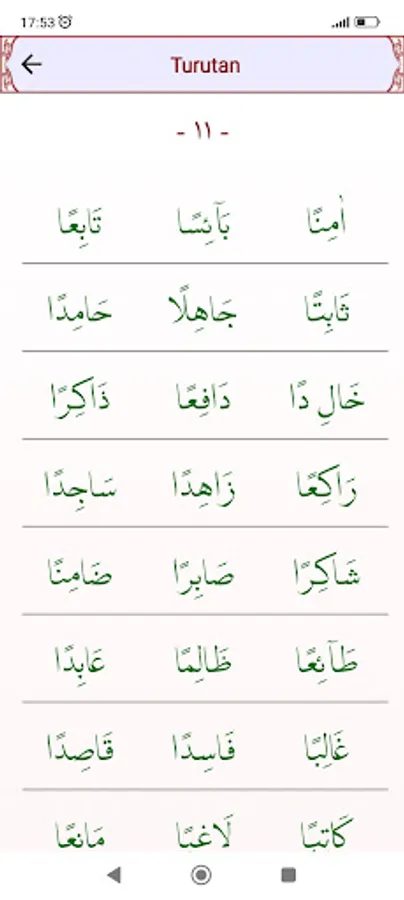 17:53
Turutan
- ١١ -
اٰمِنًا بَآئِسًا تَابِعًا
ثَابِتًا جَاهِلًا حَامِدًا
خَالِ دًا دَافِعًا ذَاكِرًا
رَاكِعًا زَاهِدًا سَاجِدًا
شَاكِرًا صَابِرًا ضَامِنًا
طَآئِعًا ظَالِمًا عَابِدًا
غَالِبًا فَاسِدًا قَاصِدًا
كَاتِبًا لَاغِبًا مَانِعًا